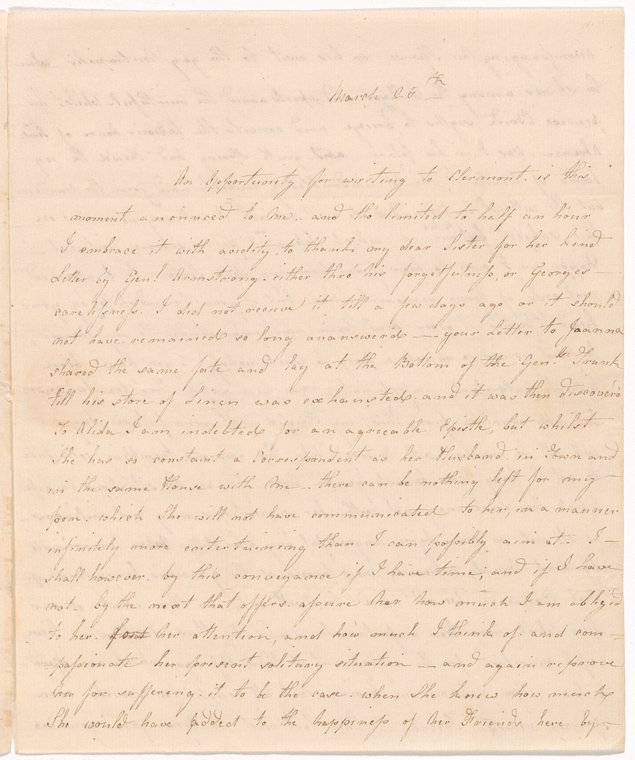 March 26th
An Opportunity for writing to Clermont. is this
moment anounced to me.. and tho limited to half an hour
I embrace it with avidity to thank my dear Sister for her kind
Letter by Genl Armstrong. either thro his forgetfulness, or Georges—
carelessness. I did not receive it till a few days ago or it should
not have remained so long unanswered — your Letter to Joanna
shared the same fate and lay at the Bottom of the Genls Trunk
till his store of Linen was exhausted. and it was then discovered
To Alida I am indebted for an agreeable Epistle, but whilst
She has so constant a Correspondent as her Husband in Town and
in the same House with me.. there can be nothing left for my
pen. which She will not have communicated to her, in a manner
infinitely more entertaining than I can possibly aim at. I—
shall however. by this conveyance if I have time; and if I have
not. by the next that offers. assure her how much I am obliged
to her. for her attention, and how much I think of. and com—
passionate her present solitary situation — and again reprove
her for suffering. it to be the case. when She knew how much
She would have added to the happiness of her Friends here by—